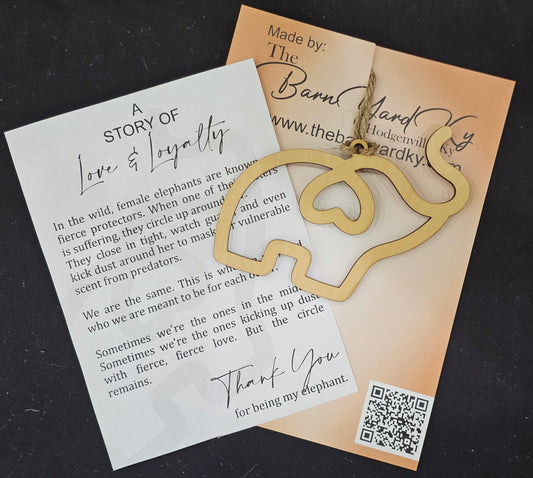 A
STORY OF
Love & Loyalty
In the wild, female elephants are known
fierce protectors. When one of their
is suffering, they circle up around
They close in tight, watch and even
kick dust around her to mask vulnerable
scent from predators.
We are the same. This is
who we are meant to be for each
Sometimes we're the ones in the
Sometimes we're the ones kicking up dust
with fierce, fierce love. But the circle
remains.
Thank You
for being my elephant.
Made by:
The
Barn Yard Ky
Hodgenville
www.theba